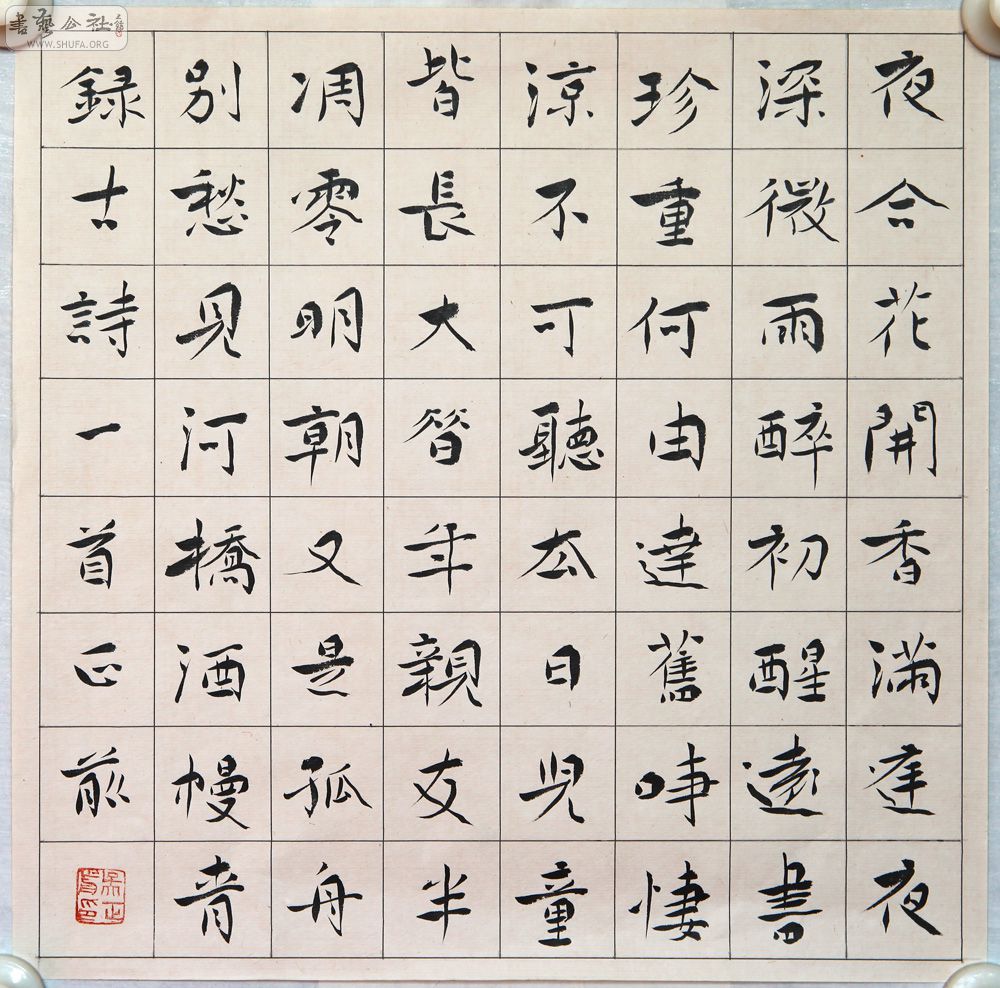 書藝公社
WWW.SHUFA.ORG
夜合花開香滿庭夜
深微雨醉初醒遠書
珍重何由達舊事悽
涼不可聽去日兒童
皆長大昔年親友半
凋零明朝又是孤舟
別愁見河橋酒幔青
録古詩一首正前